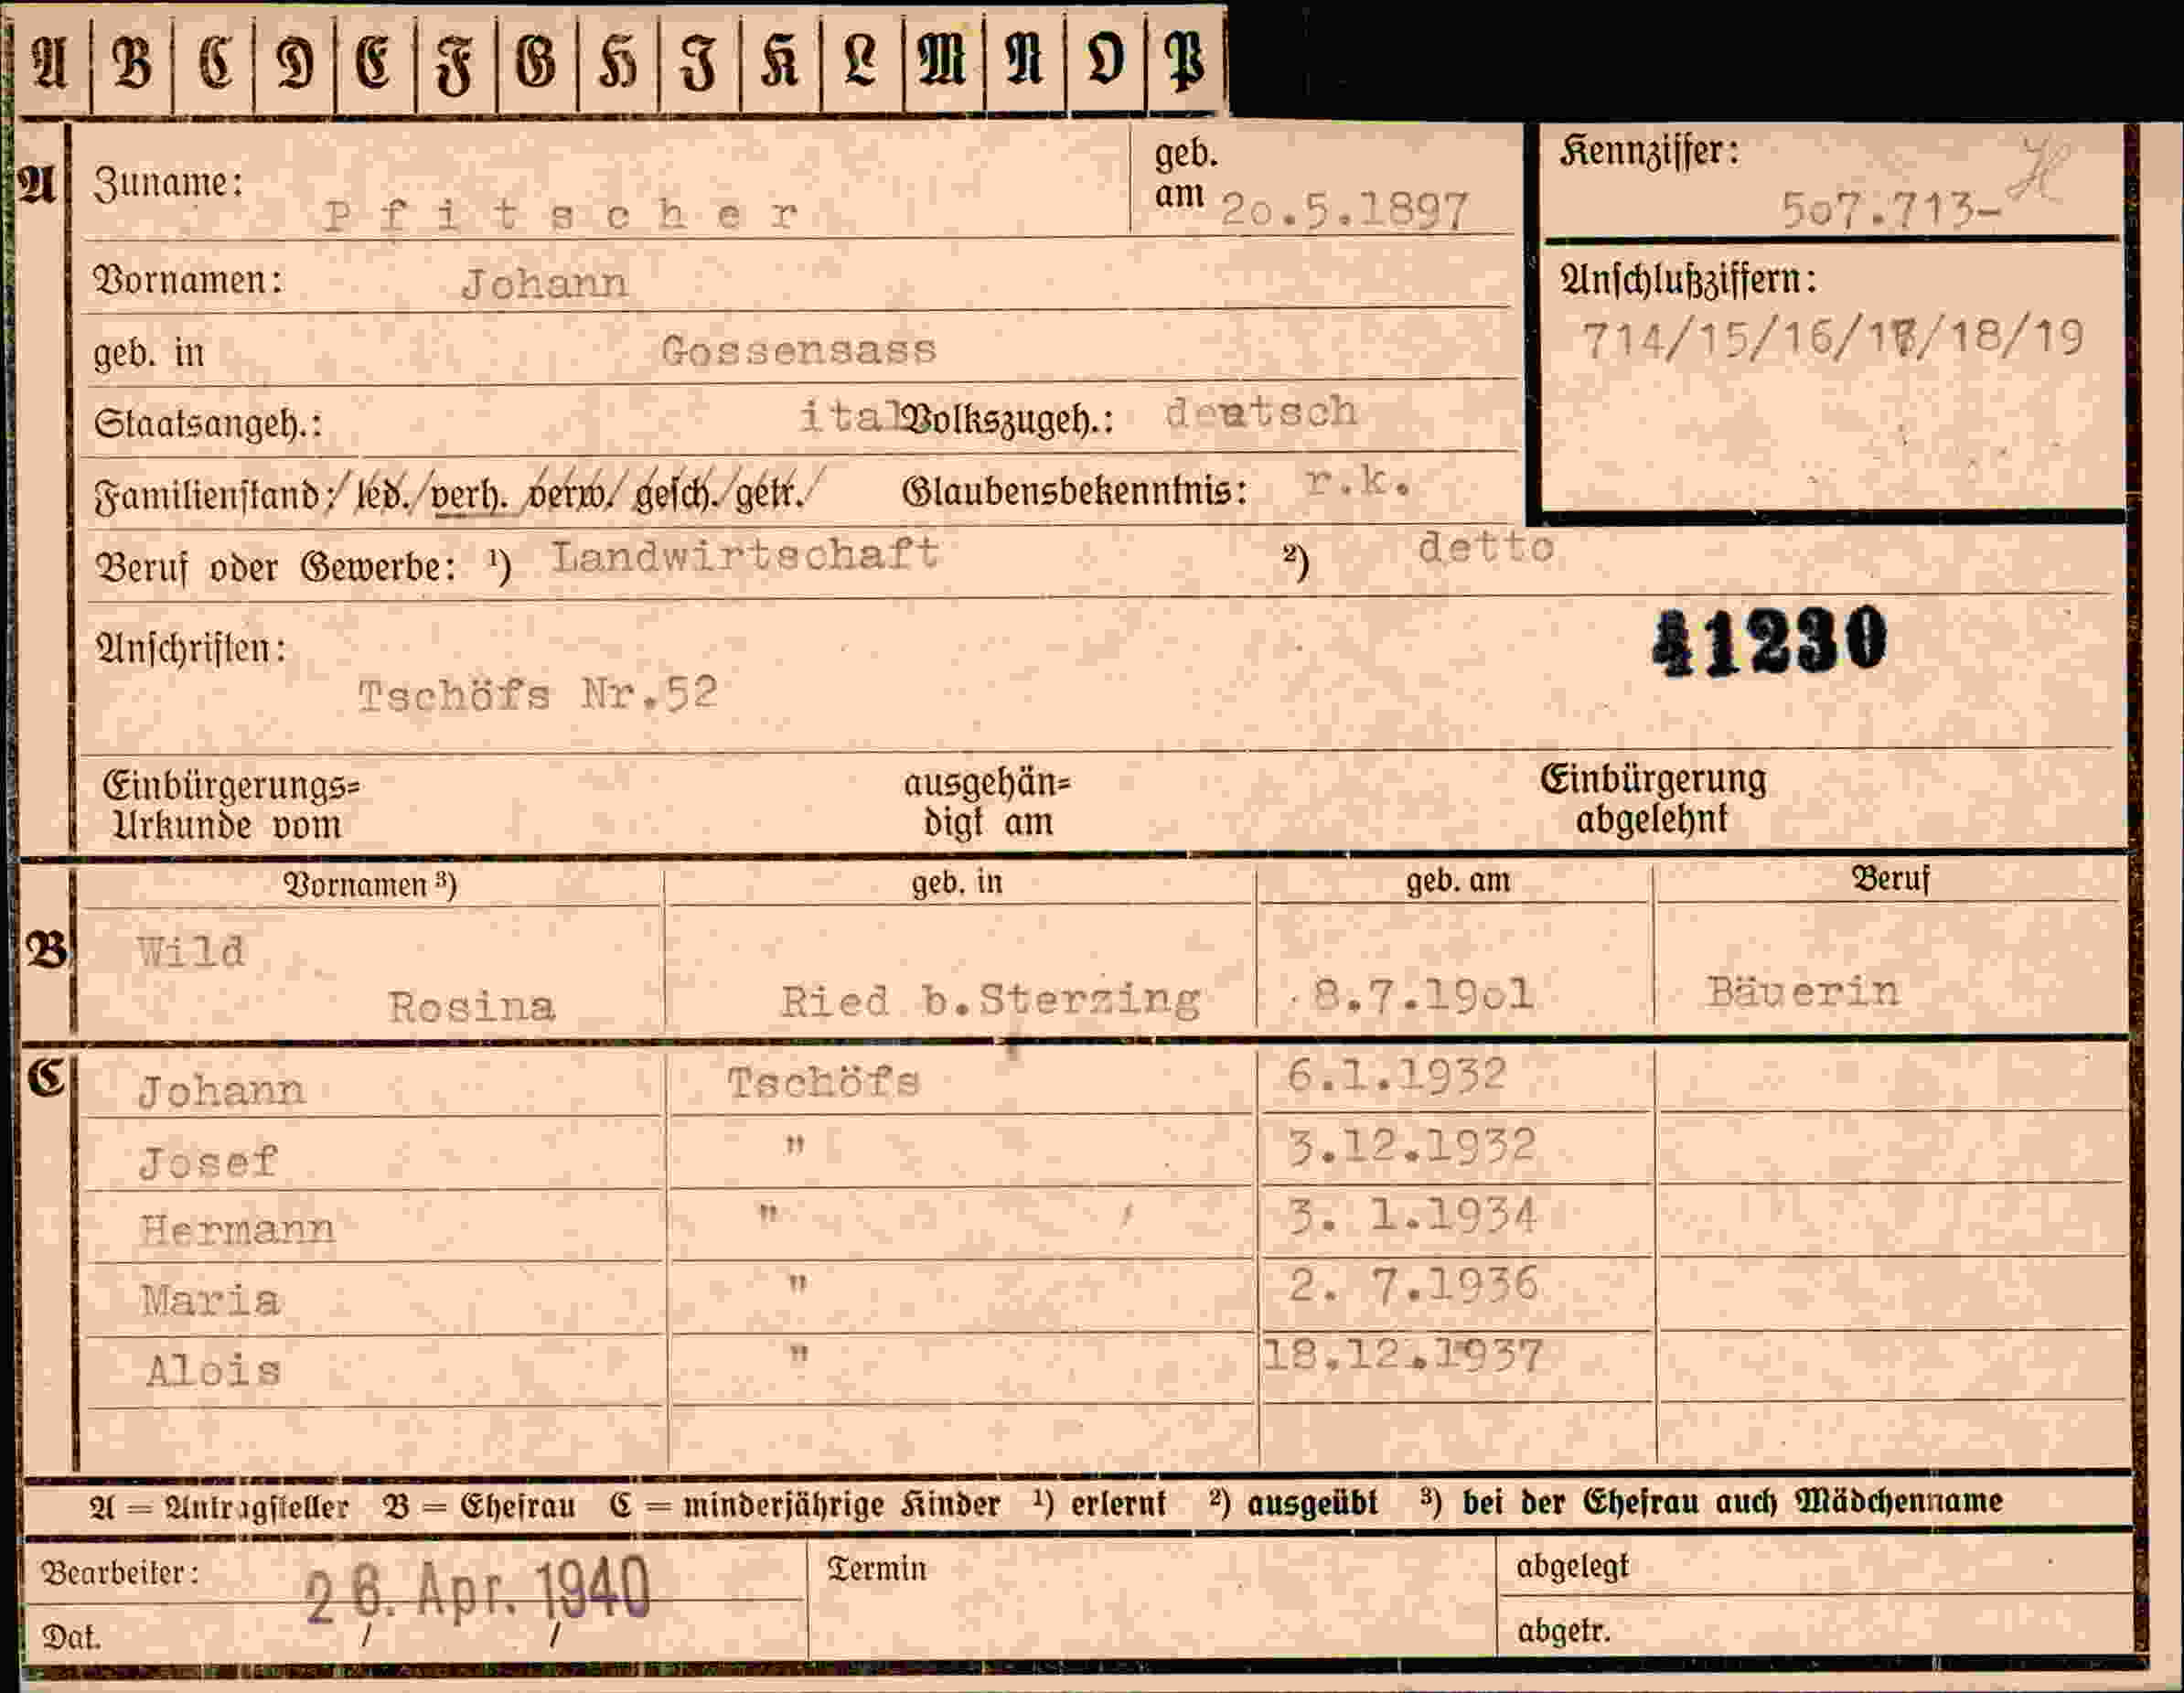 A B C D E F G H I K L M N O P
A Zuname: Pfitscher geb. am 20.5.1897 Kennziffer: 507.713- H
Vornamen: Johann Anschlußziffern:
geb. in Gossensass 714/15/16/17/18/19
Staatsangeh.: ital Volkszugeh.: deutsch
Familienstand: / led. / verh. / verw. / gesch. / getr. / Glaubensbekenntnis: r.k.
Beruf oder Gewerbe: ¹) Landwirtschaft ²) detto
Anschriften: 41230
Tschöfs Nr.52
Einbürgerungs= ausgehän= Einbürgerung
Urkunde vom digt am abgelehnt
Vornamen ³) geb. in geb. am Beruf
B Wild
Rosina Ried b.Sterzing 8.7.19o1 Bäuerin
C Johann Tschöfs 6.1.1932
Josef " 3.12.1932
Hermann " 3. 1.1934
Maria " 2. 7.1936
Alois " 18.12.1937
A = Antragsteller B = Ehefrau C = minderjährige Kinder ¹) erlernt ²) ausgeübt ³) bei der Ehefrau auch Mädchenname
Bearbeiter: 26. Apr. 1940 Termin abgelegt
Dat. abgetr.